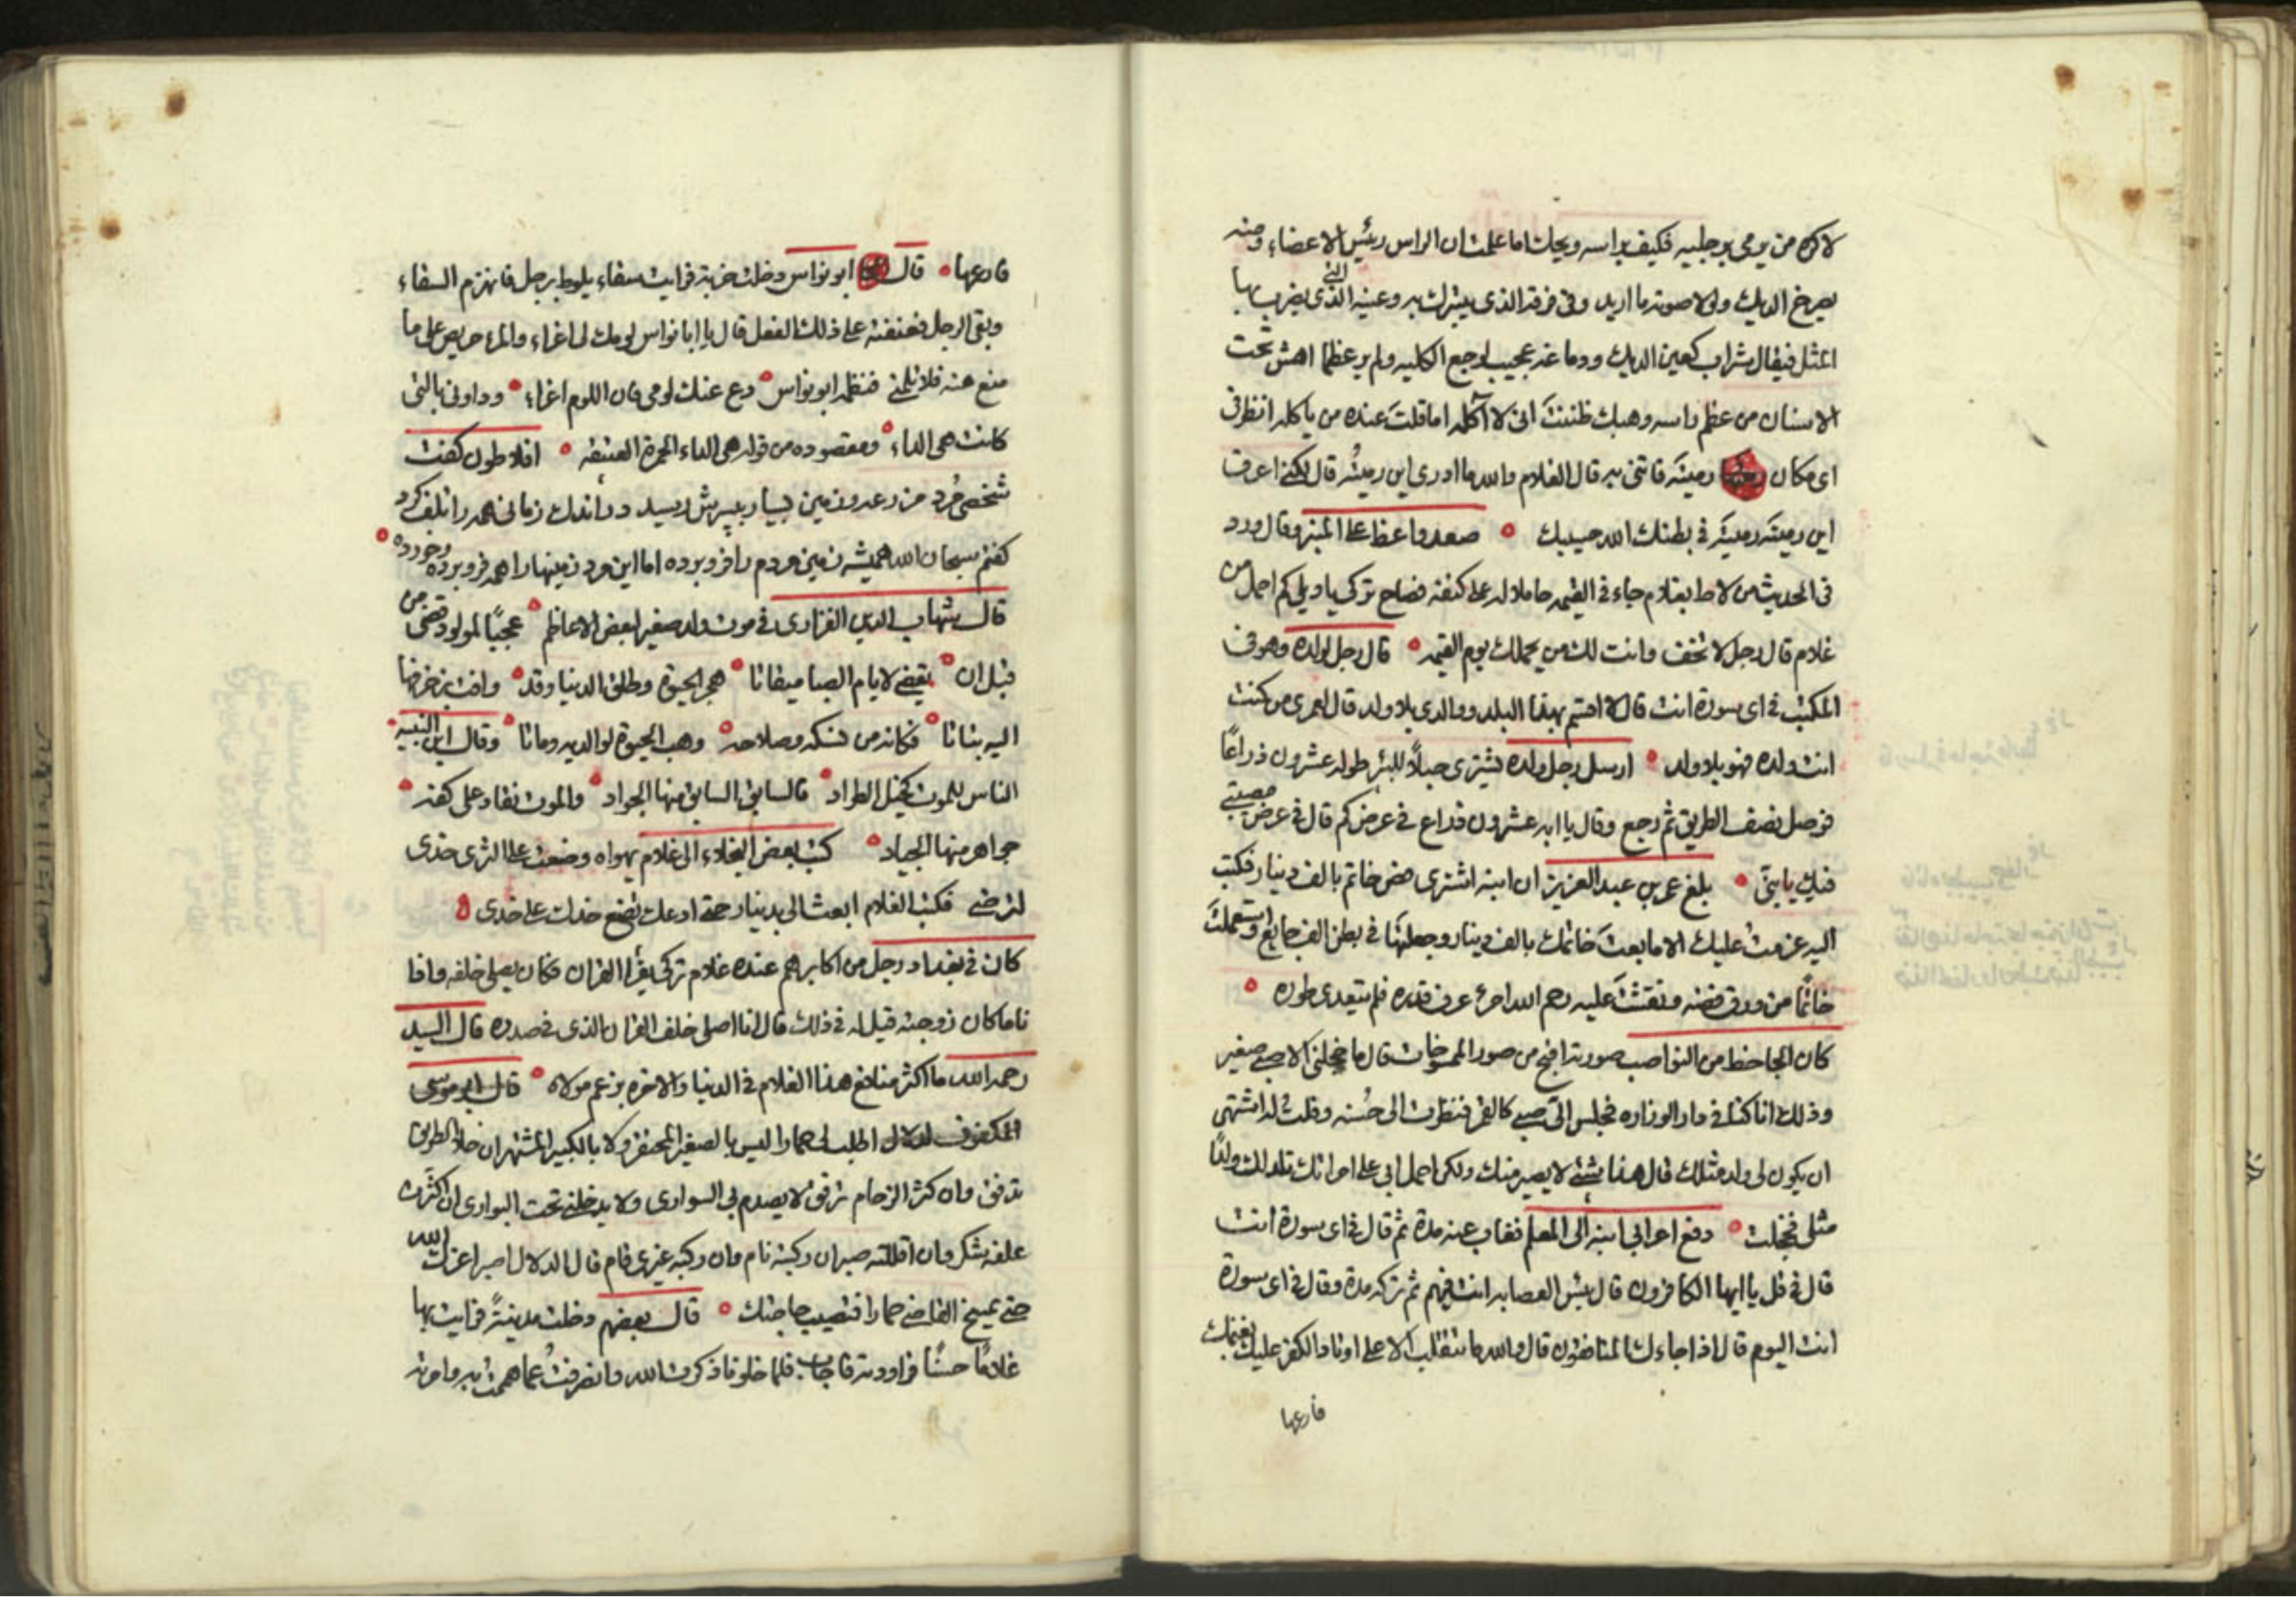 لاكره من يومى برجليه فكيف براسه ويحك اما علمت ان الراس رئيس الاعضاء ومنه
يصرخ الديك ولولا صوته ما اريد وفى فرقه الذى يتبرك به وعينه التى يضرب بها
المثل فيقال شراب كعين الديك ودماغه عجيب لوجع الكليه ولم ير عظما اهش تحت
الاسنان من عظم راسه وهبك ظننت انى لا آكله اما قلت عنده من ياكله انظر فى
اى مكان رميته فاتنى به قال الغلام والله ما ادرى اين رميته قال لكنى اعرف
اين رميته رميته فى بطنك الله حسيبك ٥ صعد واعظ على المنبر وقال ورد
فى الحديث من لاط بغلام جاء فى القيمه حاملا له على كتفه فصاح تركى يا ويلى كم احمل من
غلام قال رجل لا تخف وانت لك من يحملك يوم القيمه ٥ قال رجل لولده وهو فى
المكتب فى اى سورة انت قال لا اقسم بهذا البلد ووالدى بلا ولد قال لعمرى من كنت
انت ولده فهو بلا ولد ٥ ارسل رجل ولده يشترى حبلاً للبئر طوله عشرون ذراعاً
فوصل نصف الطريق ثم رجع وقال يا ابه عشرون ذراع فى عرض كم قال فى عرض مصيبتى
فيك يا بنى ٥ بلغ عمر بن عبد العزيز ان ابنه اشترى فص خاتم بالف دينار فكتب
اليه عزمت عليك الا ما بعت خاتمك بالف دينار وجعلتها فى بطن الف جايع واستعملت
خاتماً من ورق فضه ونقشت عليه رحم الله امرء عرف قدره فلم يتعدى طوره ٥
كان الجاحظ من النواصب صورته اقبح من صور الممسوخات قال ما خجلنى الا صبى صغير
وذلك انا كنا فى دار الوزاره فجلس الى صبى كالقمر فنظرت الى حُسنه وقلت له اشتهى
ان يكون لى ولد مثلك قال هذا شئ لا يصير منك ولكن احمل ابى على امراتك تلد لك ولدا
مثلى فخجلت ٥ دفع اعرابى ابنه الى المعلم فغاب عنه مدة ثم قال فى اى سورة انت
قال فى قل يا ايها الكافرون قال بئس العصابه انت فيهم ثم تركه مدة وقال فى اى سورة
انت اليوم قال اذا جاءك المنافقون قال والله ما تتقلب الا على اوتاد الكفر عليك بغنمك
فارعها
فارعها ٥ قال ابو نواس دخلت خربة فرايت سقاء يلوط برجل فانهزم السقاء
وبقى الرجل فعنفته على ذلك الفعل قال يا ابا نواس لومك لى اغراء والمرء حريص على ما
منع منه فلا تلمنى فنظمه ابو نواس ٥ دع عنك لومى فان اللوم اغراء ٥ وداونى بالتى
كانت هى الداء ٥ ومقصوده من قوله هى الداء الخمرة العتيقه ٥ افلاطون كفت
شخصى مُرد مزرعه وزمين بسيار بپسرش رسيد در اندك زمانى همه را تلف كرد
كفتم سبحان الله هميشه زمين مردم را فرو برده اما اين مرد زمينها را همه فرو برده وخورده ٥
قال شهاب الدين الفزارى فى موت ولد صغير لبعض الاعاظم ٥ عجبًا لمولود قضى من
قبل ان ٥ يقضى لايام الصبا ميقاتا ٥ هجر الحيوة وطلق الدنيا وقد ٥ وافت بزخرفها
اليه بتاتا ٥ فكانه من نسكه وصلاحه ٥ وهب الحيوة لوالديه وماتا ٥ وقال ابن النبيه
الناس للموت كخيل الطراد ٥ فالسابق السابق منها الجواد ٥ والموت نقاد على كفه ٥
جواهر منها الجياد ٥ كتب بعض البخلاء الى غلام يهواه وضعت على الثرى خدى
لترضى فكتب الغلام ابعث الى بدينار حتى ادعك تضع خدك على خدى ٥
كان فى بغداد رجل من اكابرهم عنده غلام تركى يقرأ القران فكان يصلى خلفه واذا
ناما كان زوجته قيل له فى ذلك قال انا اصلى خلف القران الذى فى صدره قال السيد
رحمه الله ما اكثر منافع هذا الغلام فى الدنيا والاخره بزعم مولاه ٥ قال ابو موسى
المكفوف لدلال اطلب لى حمارا ليس بالصغير المحتقر ولا بالكبير المشتهر ان خلا الطريق
تدفق وان كثر الزحام ترفق لا يصدم بى السوارى ولا يدخلنى تحت البوارى ان اكثرت
علفه شكر وان اقللته صبر ان ركبته نام وان ركبه غيرى قام قال الدلال اصبر اعزك الله
حتى يمسخ القاضى حمارا فتصيب حاجتك ٥ قال بعضهم دخلت مدينةً فرايت بها
غلامًا حسنًا فراودته فاجاب فلما خلونا ذكرت الله وانصرفتُ عما هممتُ به وامرته